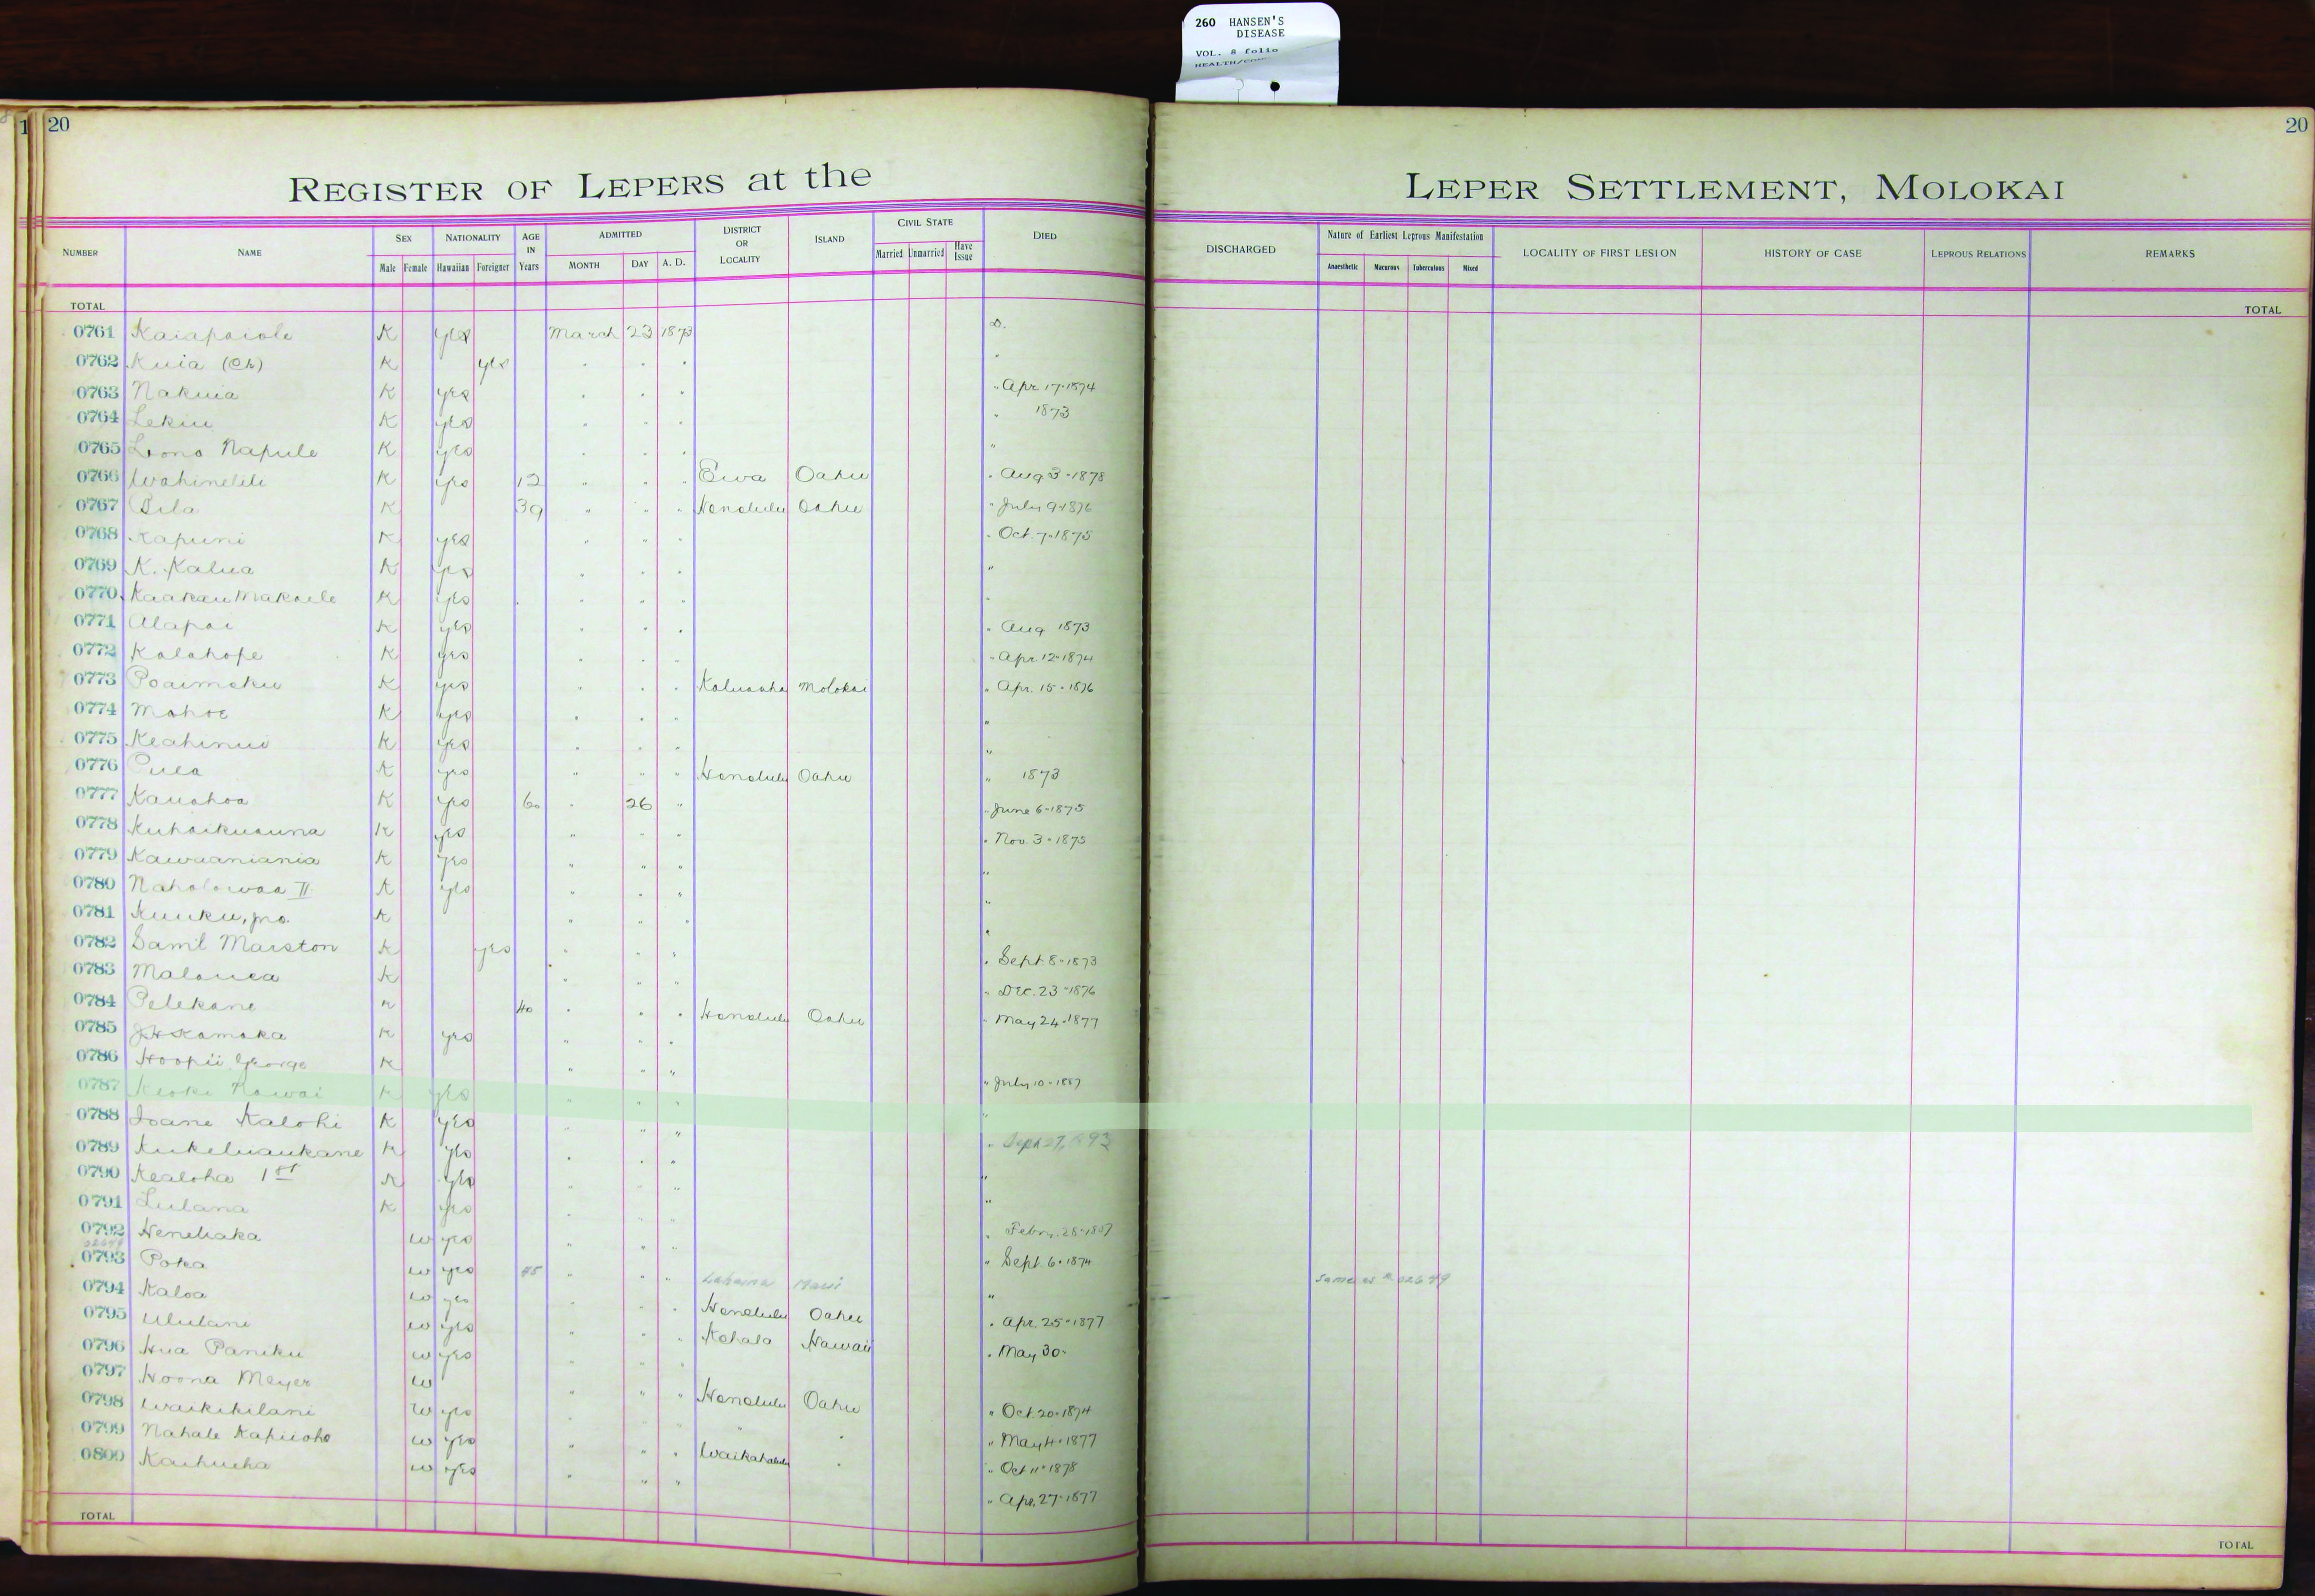 260 HANSEN'S
DISEASE
VOL. 8 folio
1 20
20
REGISTER OF LEPERS at the LEPER SETTLEMENT, MOLOKAI
NUMBER NAME SEX Male Female NATIONALITY Hawaiian Foreigner AGE IN Years ADMITTED MONTH DAY A. D. DISTRICT OR LOCALITY ISLAND CIVIL STATE Married Unmarried Have Issue DIED DISCHARGED Nature of Earliest Leprous Manifestation Anaesthetic Macurous Tuberculous Mixed LOCALITY OF FIRST LESION HISTORY OF CASE LEPROUS RELATIONS REMARKS
TOTAL TOTAL
0761 Kaiapaiole K yes March 23 1873 D.
0762 Kuia (Ch) K yes " " " "
0763 Nakuia K yes " " " " Apr 17-1874
0764 Lekiu K yes " " " " 1873
0765 Lono Napule K yes " " " "
0766 Wahinelili K yes 12 " " " Ewa Oahu " Aug 3-1878
0767 Pila K 39 " " " Honolulu Oahu " July 9-1876
0768 Kapuni K yes " " " " Oct. 7-1875
0769 K. Kalua K yes " " " "
0770 Kaakau Makaele K yes " " " "
0771 Alapai K yes " " " " Aug 1873
0772 Kalahope K yes " " " " Apr. 12-1874
0773 Poaimoku K yes " " " Kaluaaha Molokai " Apr. 15-1876
0774 Mahoe K yes " " " "
0775 Keahinui K yes " " " "
0776 Puea K yes " " " Honolulu Oahu " 1873
0777 Kauahoa K yes 60 " 26 " " June 6-1875
0778 Kuhaikuauna K yes " " " " Nov. 3-1875
0779 Kawaaniania K yes " " " "
0780 Naholowaa II K yes " " " "
0781 Kuuku, jno. K " " " "
0782 Saml Marston K yes " " " " Sept 8-1873
0783 Malauea K " " " " Dec. 23-1876
0784 Pelekane K 40 " " " Honolulu Oahu " May 24-1877
0785 J H Kamaka K yes " " "
0786 Hoopii George K " " " " July 10-1887
0787 Keoki Nawai K yes " " " "
0788 Ioane Kalohi K yes " " " " Sept 27,
0789 Kukeluaukane K yes " " " "
0790 Kealoha 1st K yes " " " "
0791 Lulana K yes " " " " Febry. 28-1887
0792 Henehaka W yes " " " " Sept. 6-1874
0793 Poka W yes 45 " " " Lahaina Maui " same as # 02649
0794 Kaloa W yes " " " Honolulu Oahu " Apr. 25-1877
0795 Ululani W yes " " " Kohala Hawaii " May 30-
0796 Hua Paniku W yes " " "
0797 Hoona Meyer W " " " Honolulu Oahu " Oct. 20-1874
0798 Waikikilani W yes " " " " " " May 4-1877
0799 Nahale Kapuoho W yes " " " Waikahalulu " " Oct 11-1878
0800 Kaihueha W yes " " " " Apr. 27-1877
TOTAL TOTAL